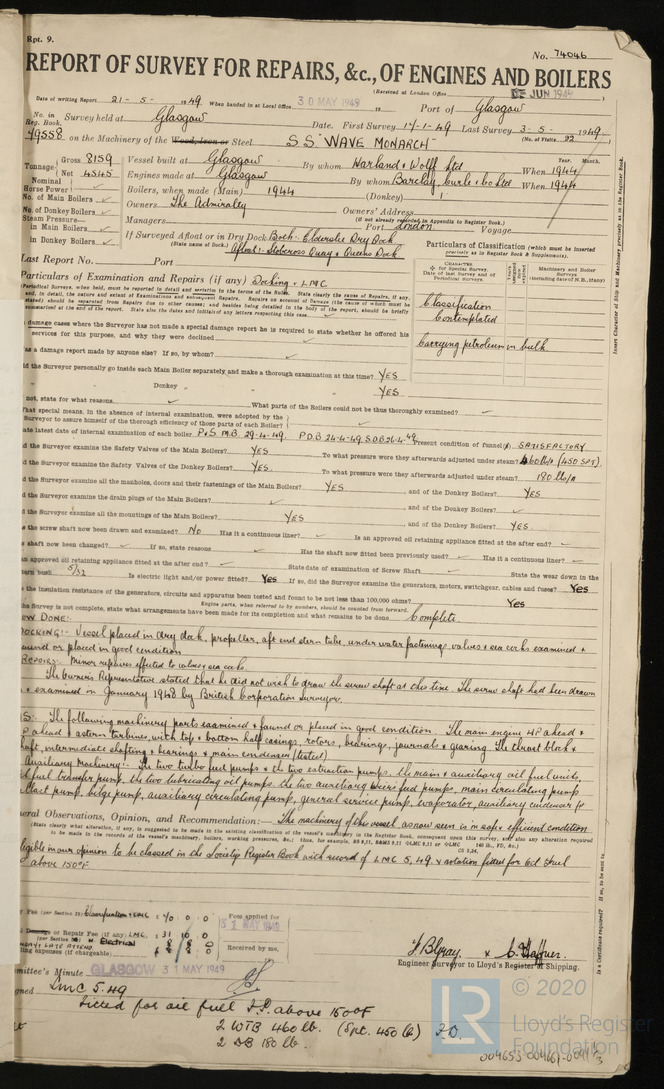 Rpt. 9.
No. 74046
REPORT OF SURVEY FOR REPAIRS, &c., OF ENGINES AND BOILERS
(Received at London Office JUN 1949)
Date of writing Report 21-5-1949 When handed in at Local Office 30 MAY 1949 Port of Glasgow
No. in Reg. Book. Survey held at Glasgow Date. First Survey 14-1-49 Last Survey 3-5-1949
49558 on the Machinery of the Wood, Iron or Steel SS "WAVE MONARCH" (No. of Visits 22)
Tonnage Gross 8159 Vessel built at Glasgow By whom Harland & Wolff Ltd When 1944
Net 4545 Engines made at Glasgow By whom Barclay Curle & Co Ltd When 1944
Nominal Horse Power Boilers, when made (Main) 1944 (Donkey)
No. of Main Boilers Owners The Admiralty Owners' Address
(if not already recorded in Appendix to Register Book.)
No. of Donkey Boilers Managers Port London Voyage
Steam Pressure— in Main Boilers If Surveyed Afloat or in Dry Dock Both. Elderslie Dry Dock
(State name of Dock.)
in Donkey Boilers Afloat:- Stobcross Quay & Queens Dock
Last Report No. Port
Particulars of Classification (which must be inserted precisely as in Register Book & Supplements).
Particulars of Examination and Repairs (if any) Docking & LMC
Classification
Contemplated
Carrying petroleum in bulk
damage cases where the Surveyor has not made a special damage report he is required to state whether he offered his
services for this purpose, and why they were declined
as a damage report made by anyone else? If so, by whom?
id the Surveyor personally go inside each Main Boiler separately, and make a thorough examination at this time? YES
" Donkey " " YES
not, state for what reasons What parts of the Boilers could not be thoroughly examined?
hat special means, in the absence of internal examination, were adopted by the
Surveyor to assure himself of the thorough efficiency of those parts of each Boiler?
ate latest date of internal examination of each boiler P & S M.B. 29-4-49. P.D.B 24-4-49 S.D.B 26-4-49 Present condition of funnel(s) SATISFACTORY
id the Surveyor examine the Safety Valves of the Main Boilers? YES To what pressure were they afterwards adjusted under steam? 460 lb/o (450 SPT)
d the Surveyor examine the Safety Valves of the Donkey Boilers? YES To what pressure were they afterwards adjusted under steam? 180 lbs/o
d the Surveyor examine all the manholes, doors and their fastenings of the Main Boilers? YES and of the Donkey Boilers? YES
d the Surveyor examine the drain plugs of the Main Boilers? and of the Donkey Boilers?
d the Surveyor examine all the mountings of the Main Boilers? YES and of the Donkey Boilers? YES
s the screw shaft now been drawn and examined? No Has it a continuous liner? Is an approved oil retaining appliance fitted at the after end?
s shaft now been changed? If so, state reasons Has the shaft now fitted been previously used? Has it a continuous liner?
n approved oil retaining appliance fitted at the after end? State date of examination of Screw Shaft State the wear down in the
tern bush 5/32 Is electric light and/or power fitted? Yes If so, did the Surveyor examine the generators, motors, switchgear, cables and fuses? Yes
the insulation resistance of the generators, circuits and apparatus been tested and found to be not less than 100,000 ohms? Yes
Engine parts, when referred to by numbers, should be counted from forward.
the Survey is not complete, state what arrangements have been made for its completion and what remains to be done Complete.
OW DONE:
DOCKING:- Vessel placed in dry dock, propeller, aft end stern tube, under water fastenings, valves & sea cocks examined &
found or placed in good condition.
REPAIRS:- Minor repairs effected to valves & sea cocks.
The Owners Representative stated that he did not wish to draw the screw shaft at this time. The screw shaft had been drawn
& examined on January 1948 by British Corporation Surveyor.
S: The following machinery parts examined & found or placed in good condition. The main engine HP ahead &
P ahead & astern turbines, with top & bottom half casings, rotors, bearings, journals & gearing The thrust block &
haft, intermediate shafting & bearings & main condenser (tested)
Auxiliary machinery:- The two turbo fuel pumps & the two extraction pumps. the main & auxiliary oil fuel units,
fuel transfer pump. the two lubricating oil pumps. the two auxiliary Weirs feed pumps, main circulating pump
Ballast pump, bilge pump, auxiliary circulating pump, general service pump, evaporator, auxiliary condenser &c
eral Observations, Opinion, and Recommendation:— The machinery of this vessel as now seen in a safe & efficient condition
eligible in our opinion to be classed in the Societys Register Book with record of LMC 5,49 & notation fitted for Oil Fuel
above 150°F
Fee (per Section 28) Classification & LMC £ 40 0 0 Fees applied for
Damage or Repair Fee (if any) LMC £ 31 10 0 31 MAY 1949
(per Section 28) Electrical £ 8 8 0 Received by me,
elling expenses (if chargeable) £
J. B. Gray. & C. Haffner.
Engineer Surveyor to Lloyd's Register of Shipping.
mmittee's Minute GLASGOW 31 MAY 1949
gned LMC 5.49
Fitted for oil fuel F.P. above 150°F
2 WTB 460 lb. (Spt. 450 lb) F.D.
2 DB 180 lb.
Insert Character of Ship and Machinery precisely as in the Register Book.
Is a Certificate required? If so, to be sent to
LR © 2020
Lloyd's Register
Foundation